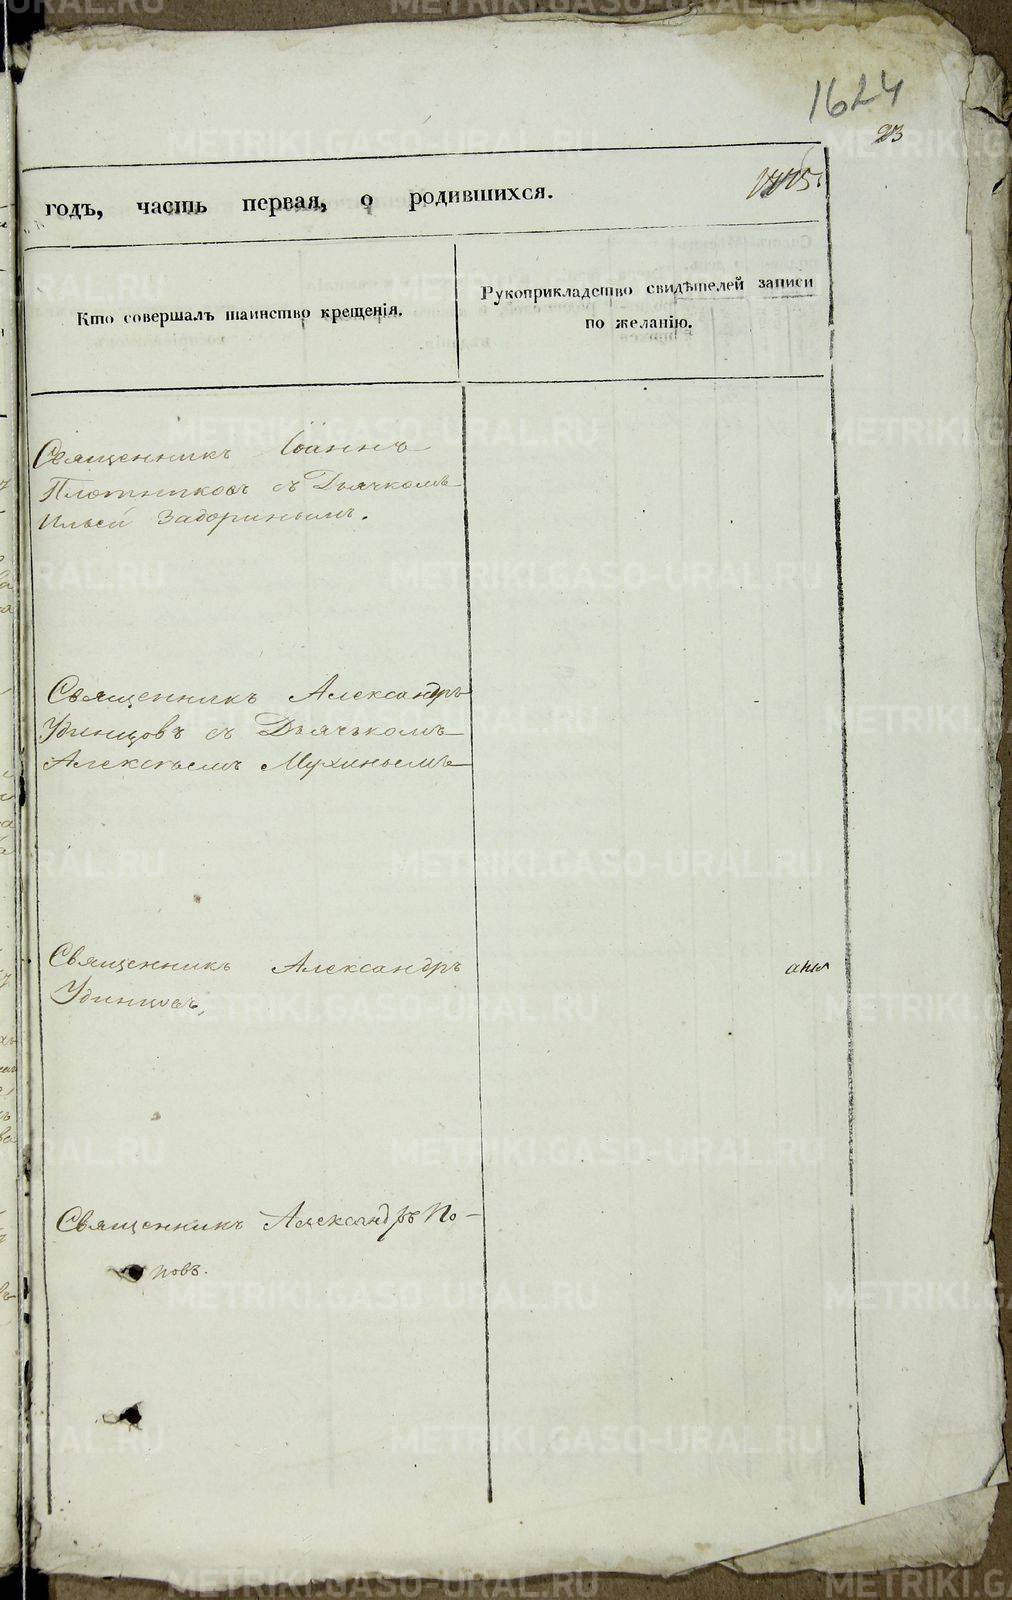 1624
23
годъ, часть первая, о родившихся.
Кто совершалъ таинство крещенія.
Рукоприкладство свидѣтелей записи
по желанію.
Священникъ Іоаннъ
Плотниковъ съ Дьячкомъ
Ильей Задоринымъ.
Священникъ Александръ
Удинцовъ съ Дьячькомъ
Алексѣемъ Мухинымъ
Священникъ Александръ
Удинцовъ.
Священникъ Александръ По-
повъ.
METRIKI.GASO-URAL.RU